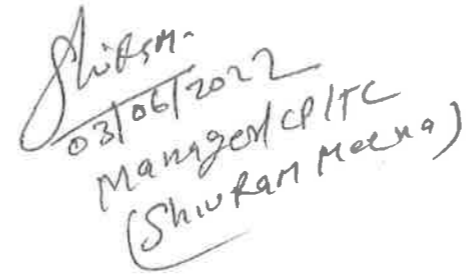 ShivRam
03/06/2022
Manager/CP/TC
(ShivRam Meena)